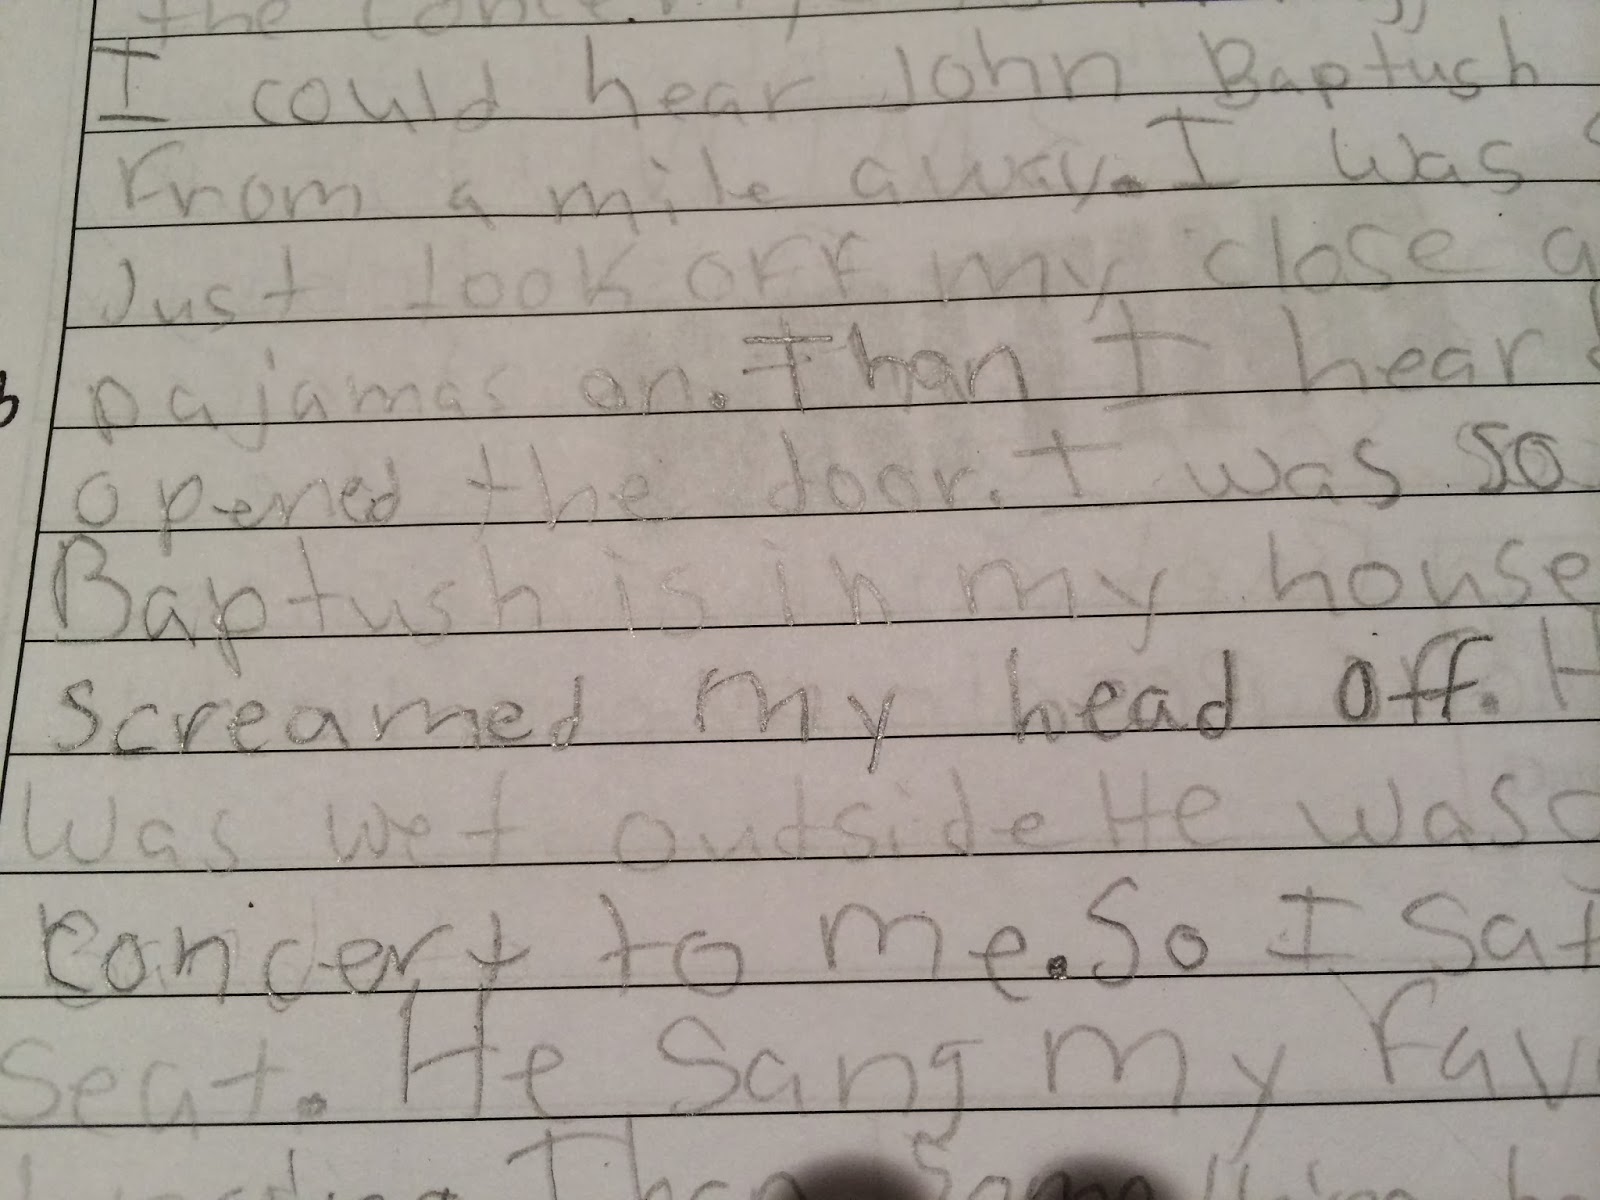 the concert
I could hear John Baptush
From a mile away. I was
Just took off my close a
pajamas on. Than I heard
opened the door. I was so
Baptush is in my house
screamed my head off. H
Was wet outside He was
concert to me. So I sat
seat. He Sang my fav
Than